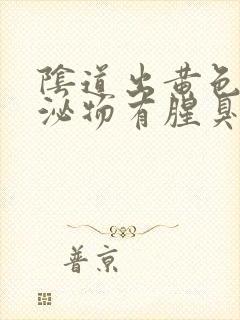 陰道出黃色
泌物有腥臭
普京